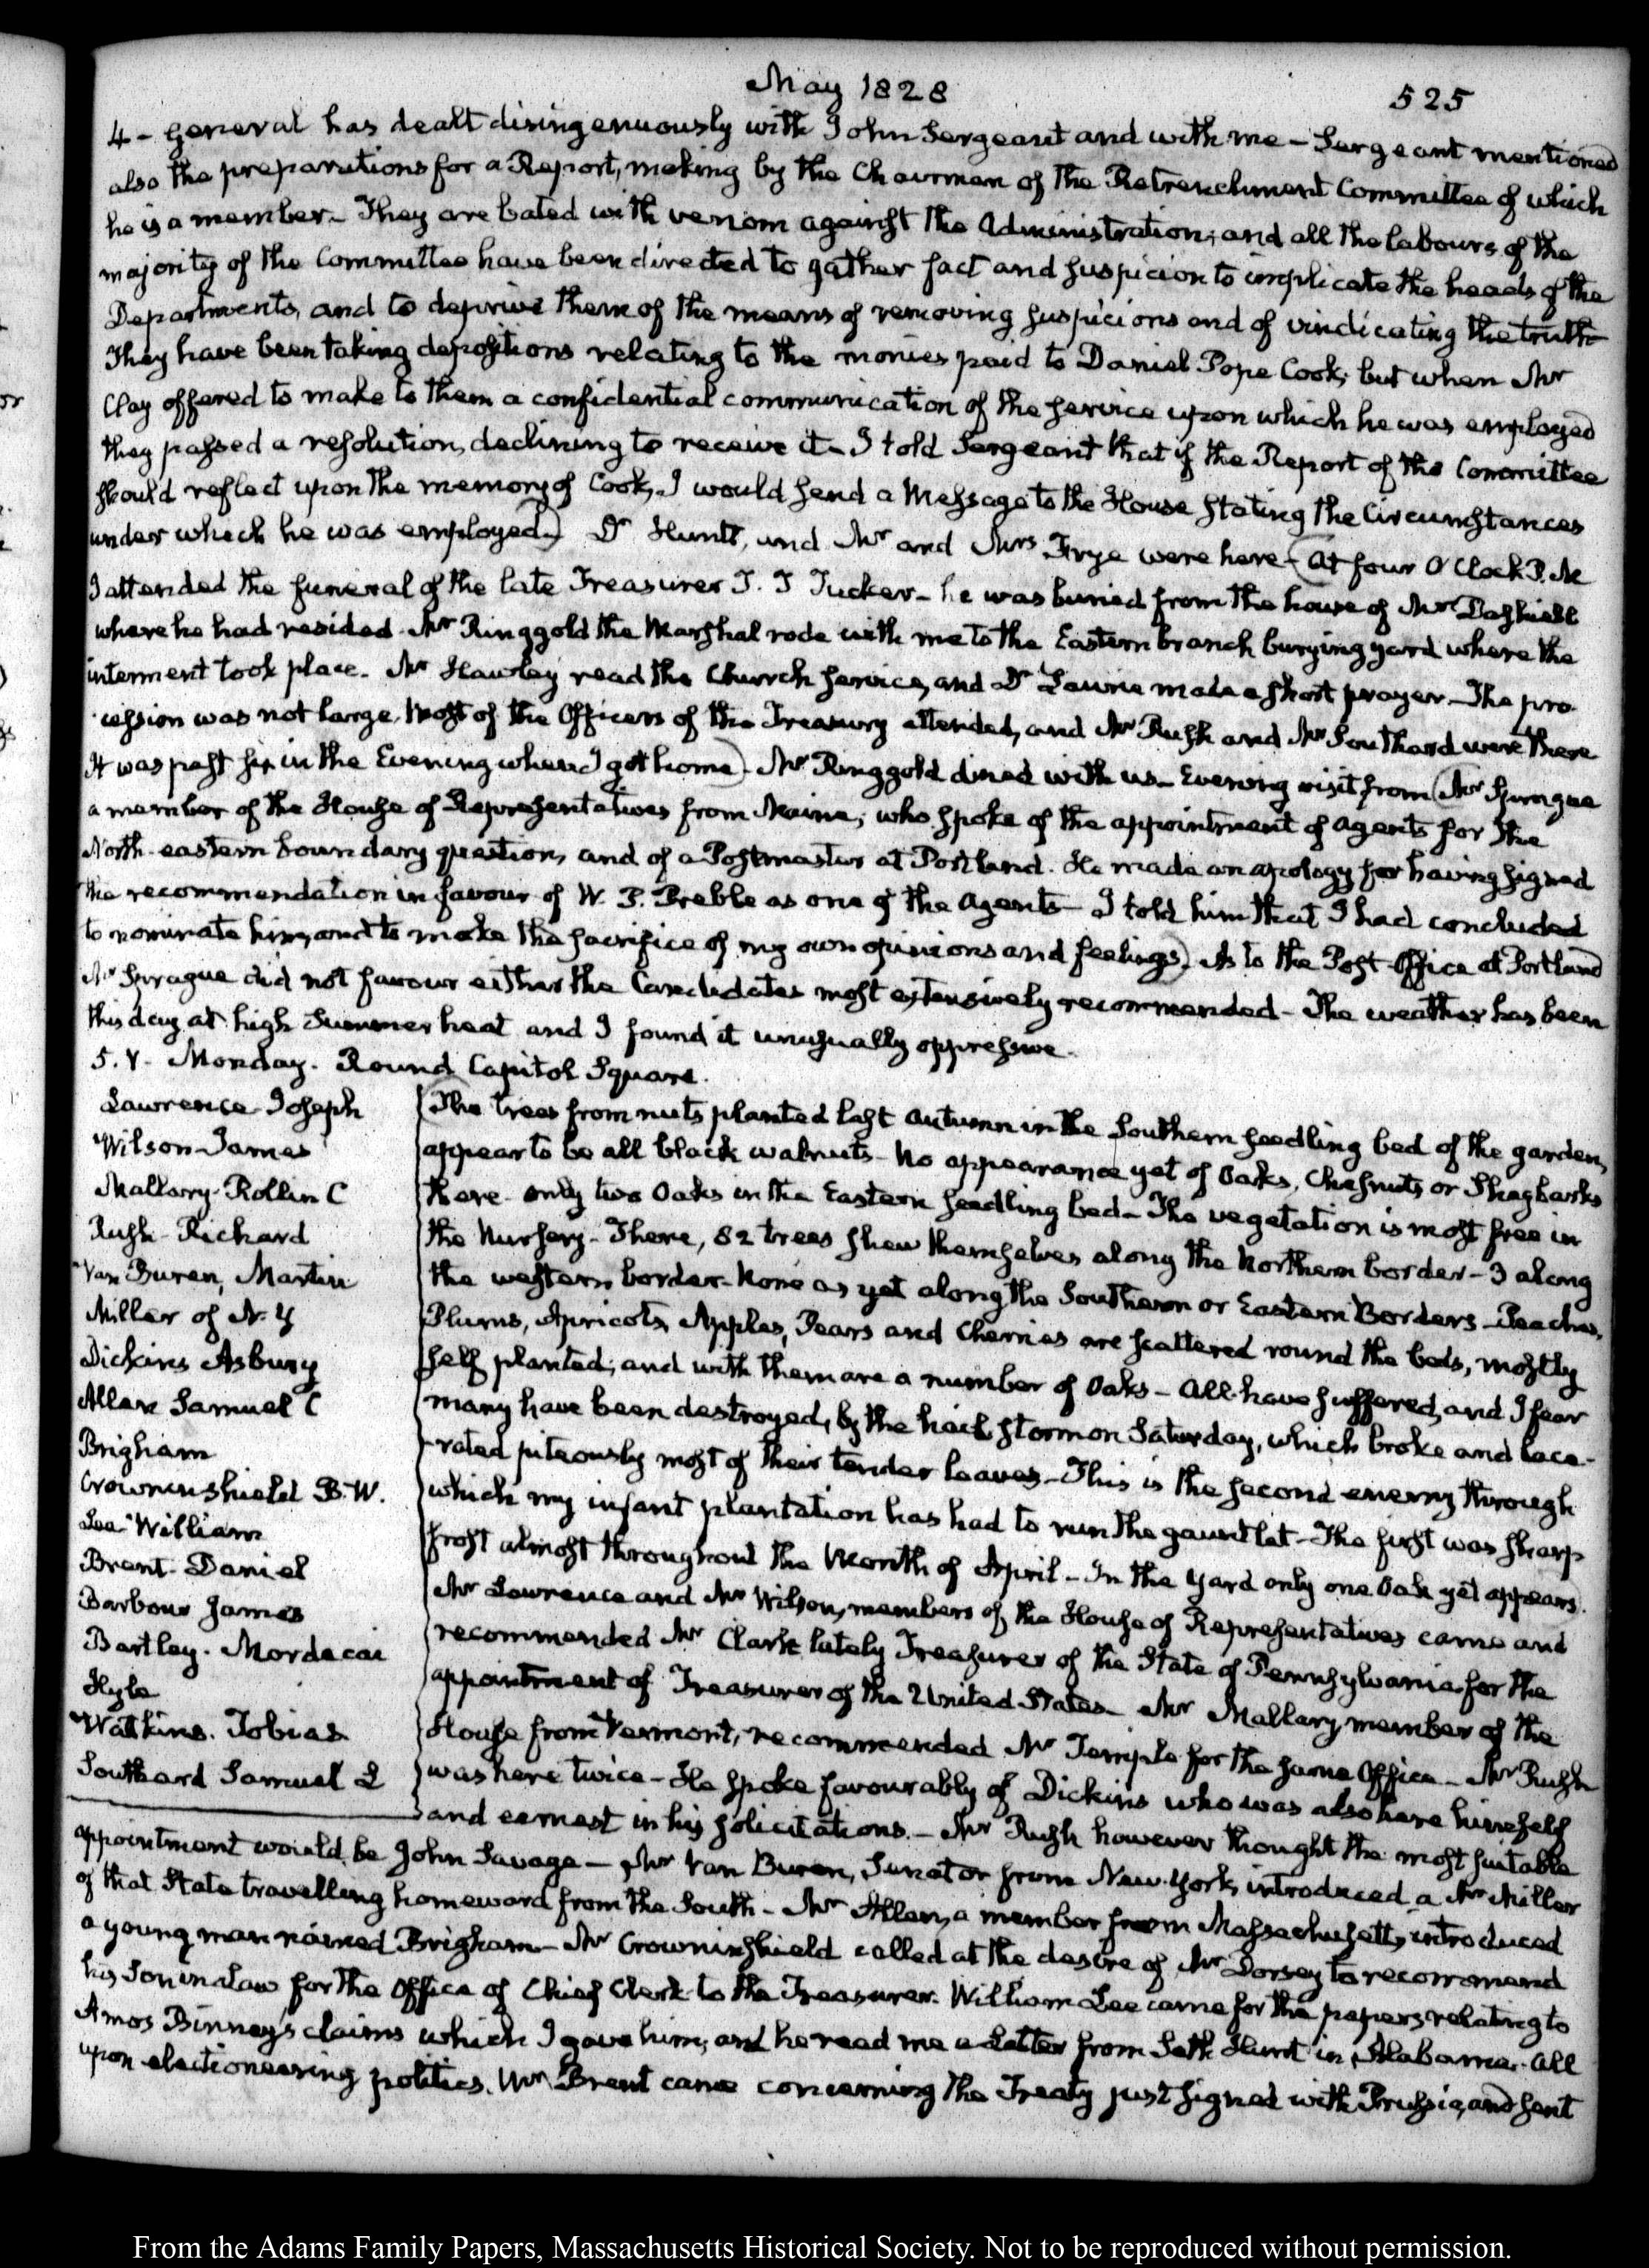 May 1828
525
4 - General has dealt disingenuously with John Sergeant and with me - Sergeant mentioned
also the preparations for a Report, making by the Chairman of the Retrenchment Committee of which
he is a member - They are bated with venom against the Administration; and all the labours of the
majority of the Committee have been directed to gather fact and suspicion to implicate the heads of the
Departments, and to deprive them of the means of removing suspicions and of vindicating the truth
They have been taking depositions relating to the monies paid to Daniel Pope Cook; but when Mr
Clay offered to make to them a confidential communication of the service upon which he was employed
they passed a resolution, declining to receive it - I told Sergeant that if the Report of the Committee
should reflect upon the memory of Cook, I would send a Message to the House stating the Circumstances
under which he was employed.) Dr Huntt, and Mr and Mrs Frye were here - (At four O'Clock P.M
I attended the funeral of the late Treasurer T. T Tucker - he was buried from the house of Mr Dashiell
where he had resided. Mr Ringgold the Marshal rode with me to the Eastern branch burying yard where the
interment took place. Mr Hawley read the Church service, and Dr Laurie made a short prayer - The pro-
cession was not large. Most of the Officers of the Treasury attended, and Mr Rush and Mr Southard were there
It was past six in the Evening when I got home). Mr Ringgold dined with us - Evening visit from (Mr Sprague
a member of the House of Representatives from Maine; who spoke of the appointment of Agents for the
North-eastern boundary question, and of a Postmaster at Portland. He made an apology for having signed
the recommendation in favour of W. P. Preble as one of the Agents - I told him that I had concluded
to nominate him, and to make the sacrifice of my own opinions and feelings). As to the Post-Office at Portland
Mr Sprague did not favour either the Candidates most extensively recommended - The weather has been
this day at high Summer heat and I found it unusually oppressive.
5. V. Monday. Round Capitol Square.
Lawrence Joseph
Wilson James
Mallary. Rollin C
Rush - Richard
Van Buren, Martin
Miller of N.Y
Dickins Asbury
Allen Samuel C
Brigham
Crowninshield B. W.
Lee William
Brent. Daniel
Barbour James
Bartley. Mordecai
Hyle
Watkins. Tobias
Southard Samuel L
(The trees from nuts planted last Autumn in the Southern seedling bed of the garden,
appear to be all black walnuts - No appearance yet of Oaks, Chesnuts, or Shagbarks
there - only two Oaks in the Eastern seedling bed - The vegetation is most free in
the Nursery - There, 82 trees shew themselves along the Northern border - 3 along
the western border - None as yet along the Southern or Eastern Borders - Peaches,
Plums, Apricots, Apples, Pears and Cherries are scattered round the beds, mostly
self planted; and with them are a number of Oaks - All have suffered, and I fear
many have been destroyed, by the hail storm on Saturday, which broke and lace-
rated piteously most of their tender leaves - This is the second enemy through
which my infant plantation has had to run the gauntlet - The first was sharp
frost almost throughout the Month of April - In the yard only one Oak yet appears.
Mr Lawrence and Mr Wilson, members of the House of Representatives came and
recommended Mr Clark lately Treasurer of the State of Pennsylvania for the
appointment of Treasurer of the United States - Mr Mallary, member of the
House from Vermont, recommended Mr Temple for the same Office - Mr Rush
was here twice - He spoke favourably of Dickins who was also here himself
and earnest in his solicitations. - Mr Rush however thought the most suitable
appointment would be John Savage - Mr Van Buren, Senator from New-York, introduced a Mr Miller
of that State travelling homeward from the South - Mr Allen, a member from Massachusetts, introduced
a young man named Brigham - Mr Crowninshield called at the desire of Mr Dorsey to recommend
his Son in Law for the Office of Chief Clerk to the Treasurer. William Lee came for the papers relating to
Amos Binney's claims which I gave him; and he read me a Letter from Seth Hunt in Alabama. all
upon electioneering politics. Mr Brent came concerning the Treaty just signed with Prussia, and sent
From the Adams Family Papers, Massachusetts Historical Society. Not to be reproduced without permission.